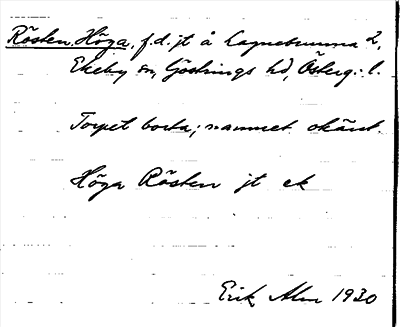 Rösten, Höga, f.d. jt å Lagnebrunna 2,
Ekeby sn, Göstrings hd, Österg. l.
Torpet borta; namnet okänt.
Höga Rösten jt ek
Erik Alm 1930